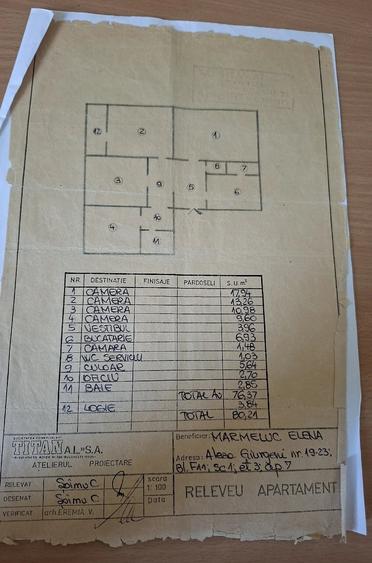 12
2
1
3
9
5
8
7
6
4
10
11
NR DESTINATIE FINISAJE PARDOSELI S.U m²
1 CAMERA 17,94
2 CAMERA 13,26
3 CAMERA 10,98
4 CAMERA 9,60
5 VESTIBUL 3,96
6 BUCATARIE 6,93
7 CAMARA 1,48
8 WC SERVICIU 1,03
9 CULOAR 5,64
10 OFICIU 2,70
11 BAIE 2,85
TOTAL Au 76,37
12 LOGIE 3,84
TOTAL 80,21
SOCIETATEA COMERCIALA
TITAN A.L." S.A.
ATELIERUL PROIECTARE
RELEVAT Soimu C.
DESENAT Soimu C.
VERIFICAT arh. EREMIA V.
scara
1: 100
Data
Beneficiar: MARMELUC ELENA
Adresa: Aleea Giurgeni nr 19-23;
Bl. F11; Sc 1; et 3; ap. 7
RELEVEU APARTAMENT